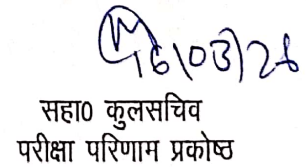 16/03/26
सहा0 कुलसचिव
परीक्षा परिणाम प्रकोष्ठ